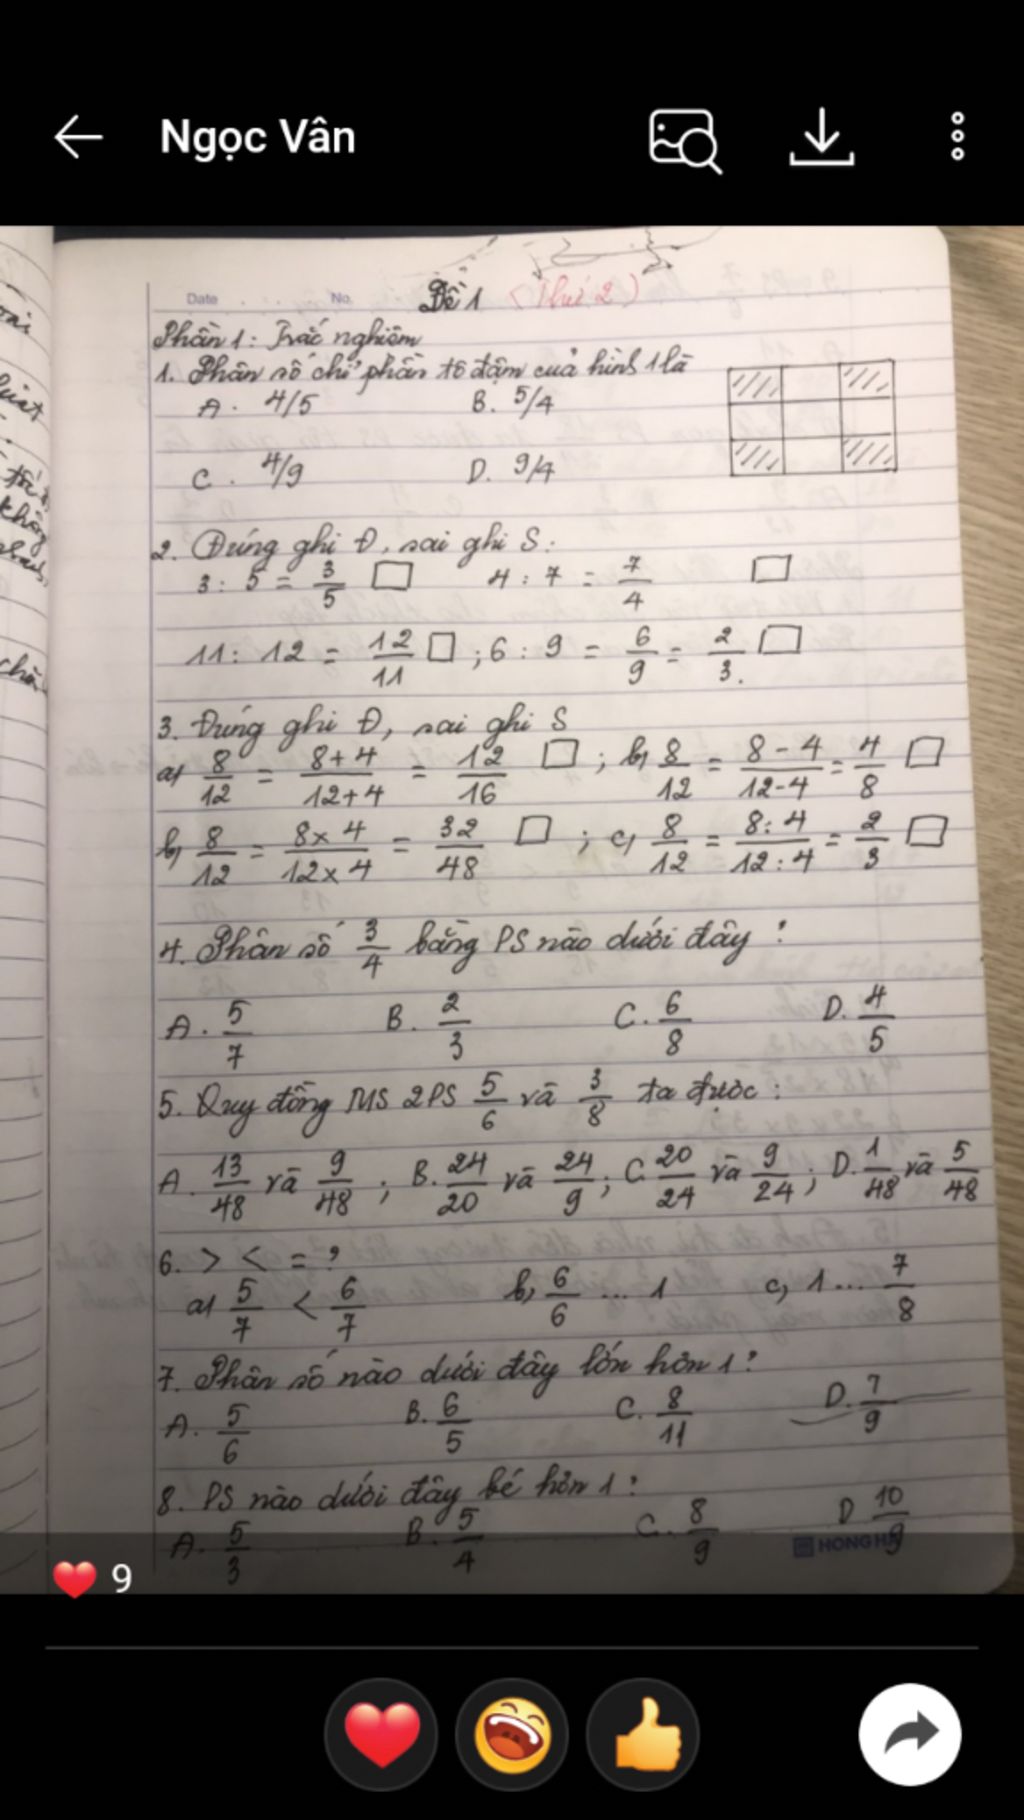 Ngọc Vân
Date No. Đề 1 (Thứ 2)
Phần 1: Trắc nghiệm
1. Phân số chỉ phần tô đậm của hình 1 là
A. 4/5 B. 5/4
C. 4/9 D. 9/4
2. Đúng ghi Đ, sai ghi S:
3 : 5 = 3/5 □ 4 : 7 = 7/4 □
11 : 12 = 12/11 □ ; 6 : 9 = 6/9 = 2/3. □
3. Đúng ghi Đ, sai ghi S
a, 8/12 = 8+4/12+4 = 12/16 □ ; b, 8/12 = 8-4/12-4 = 4/8 □
b, 8/12 = 8x4/12x4 = 32/48 □ ; c, 8/12 = 8:4/12:4 = 2/3 □
4. Phân số 3/4 bằng PS nào dưới đây ?
A. 5/7 B. 2/3 C. 6/8 D. 4/5
5. Quy đồng MS 2PS 5/6 và 3/8 ta được :
A. 13/48 và 9/48 ; B. 24/20 và 24/9 ; C. 20/24 và 9/24 ; D. 1/48 và 5/48
6. > < = ?
a, 5/7 < 6/7 b, 6/6 ... 1 c, 1 ... 7/8
7. Phân số nào dưới đây lớn hơn 1 ?
A. 5/6 B. 6/5 C. 8/11 D. 7/9
8. PS nào dưới đây bé hơn 1 ?
A. 5/3 B. 5/4 C. 8/9 D 10/9
HONG HA
9